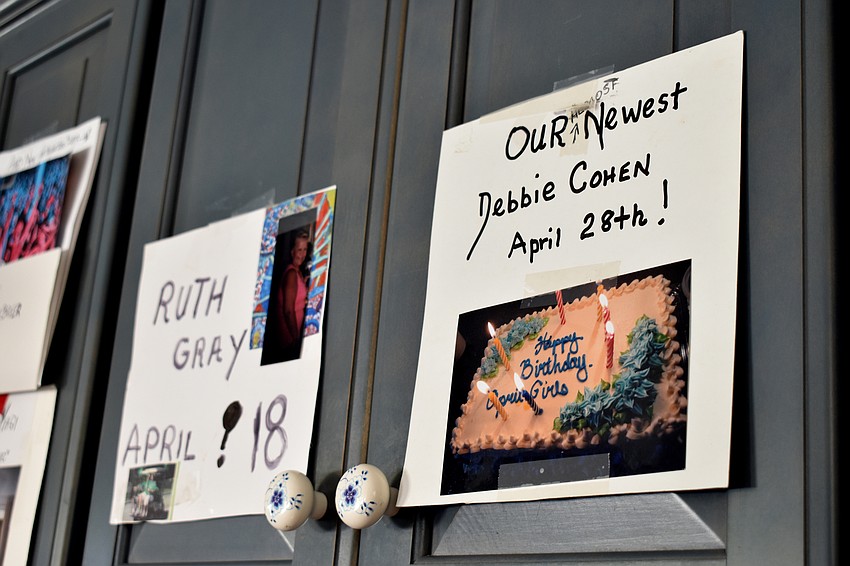 OUR Newest
Debbie COHEN
April 28th!
Happy
Birthday
Girls
RUTH
GRAY
APRIL ? 18